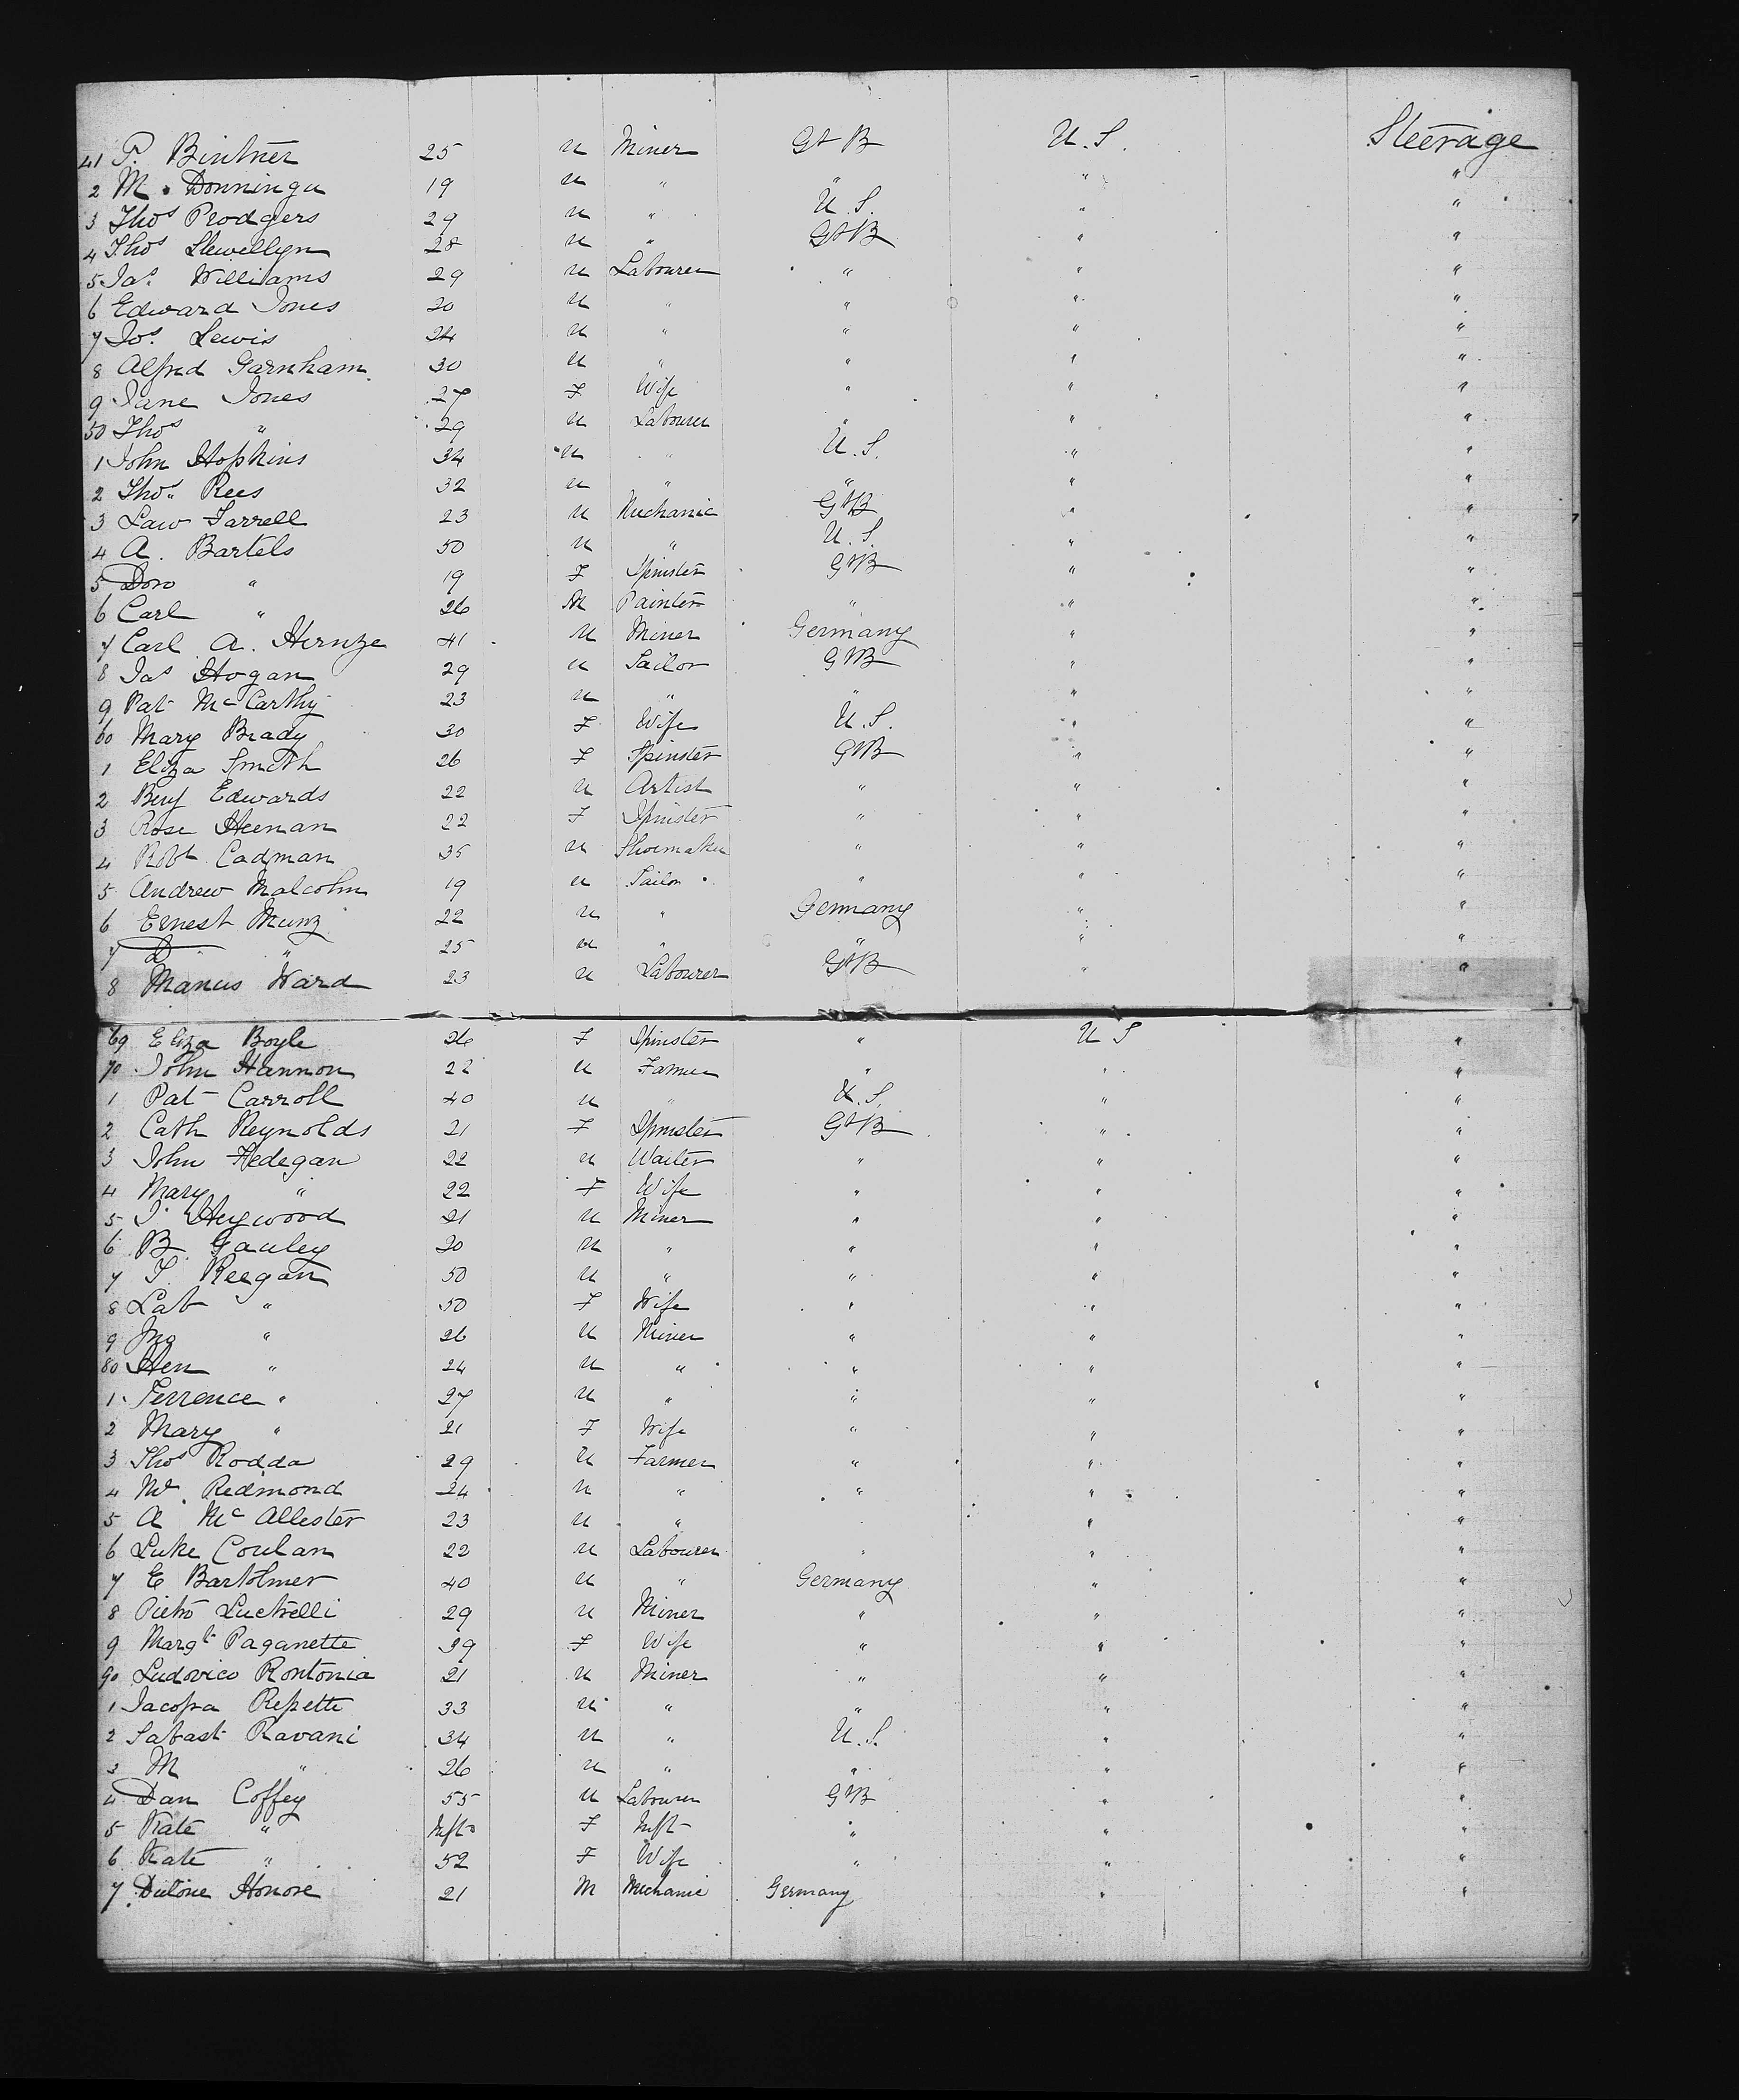 41 P. Bintner 25 M Miner Gt B U.S. Steerage
2 M. Donningu 19 M " " " "
3 Thos Prodgers 29 M " U.S. " "
4 Thos Llewellyn 28 M " Gt B " "
5 Jas. Williams 29 M Labourer " " "
6 Edward Jones 20 M " " " "
7 Jos. Lewis 24 M " " " "
8 Alfred Garnham 30 M " " " "
9 Jane Jones 27 F Wife " " "
50 Thos " 29 M Labourer " " "
1 John Hopkins 34 M " U.S. " "
2 Thos. Rees 32 M " " " "
3 Law Farrell 23 M Mechanic Gt B " "
4 A. Bartels 50 M " U.S. " "
5 Doro " 19 F Spinster Gt B " "
6 Carl " 26 M Painter " " "
7 Carl A. Hernze 41 M Miner Germany " "
8 Jas Hogan 29 M Sailor Gt B " "
9 Pat McCarthy 23 M " " " "
60 Mary Brady 30 F Wife U.S. " "
1 Eliza Smith 26 F Spinster Gt B " "
2 Benj Edwards 22 M Artist " " "
3 Rose Heenan 22 F Spinster " " "
4 Robt Cadman 35 M Shoemaker " " "
5 Andrew Malcolm 19 M Sailor " " "
6 Ernest Munz 22 M " Germany " "
7 D " 25 M " " " "
8 Manus Ward 23 M Labourer Gt B " "
69 Eliza Boyle 26 F Spinster " U S "
70 John Hannon 22 M Farmer " " "
1 Pat Carroll 40 M " U.S. " "
2 Cath Reynolds 21 F Spinster Gt B " "
3 John Fedegan 22 M Waiter " " "
4 Mary " 22 F Wife " " "
5 J. Heywood 21 M Miner " " "
6 B. Gauley 20 M " " " "
7 T. Reegan 50 M " " " "
8 Cat " 50 F Wife " " "
9 Jno " 26 M Miner " " "
80 Hen " 24 M " " " "
1 Terrence " 27 M " " " "
2 Mary " 21 F Wife " " "
3 Thos Rodda 29 M Farmer " " "
4 Redmond 24 M " " " "
5 A McAllester 23 M " " "
6 Luke Coulan 22 M Labourer " " "
7 E Bartolmer 40 M " Germany " "
8 Pietro Luctrelli 29 M Miner " " "
9 Margt Paganette 39 F Wife " " "
90 Ludovico Rontonia 21 M Miner " " "
1 Jacopa Repette 33 M " " " "
2 Sabast Ravani 34 M " U.S. " "
3 M " 26 M " " " "
4 Dan Coffey 55 M Labourer Gt B " "
5 Kate " Inft F Inft " " "
6 Kate " 52 F Wife " " "
7 Dutone Honore 21 M Mechanic Germany " "